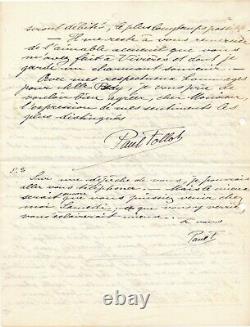 seront débités, le plus longtemps possible
Il me reste à vous remercier
de l'aimable accueil que vous
m'avez fait à Vivières et dont je
garde un charmant souvenir.
Avec mes respectueux hommages
pour Melle, je vous prie de
vouloir agréer, cher Monsieur,
l'expression de mes sentiments les
plus distingués
Paul Follot
P.S
Sur une dépêche de vous, je pourrais
aller vous téléphoner - Mais le mieux
serait que vous puissiez venir chez
moi Samedi que vous y verriez
vous éclairerait mieux.
à vous
Paul F